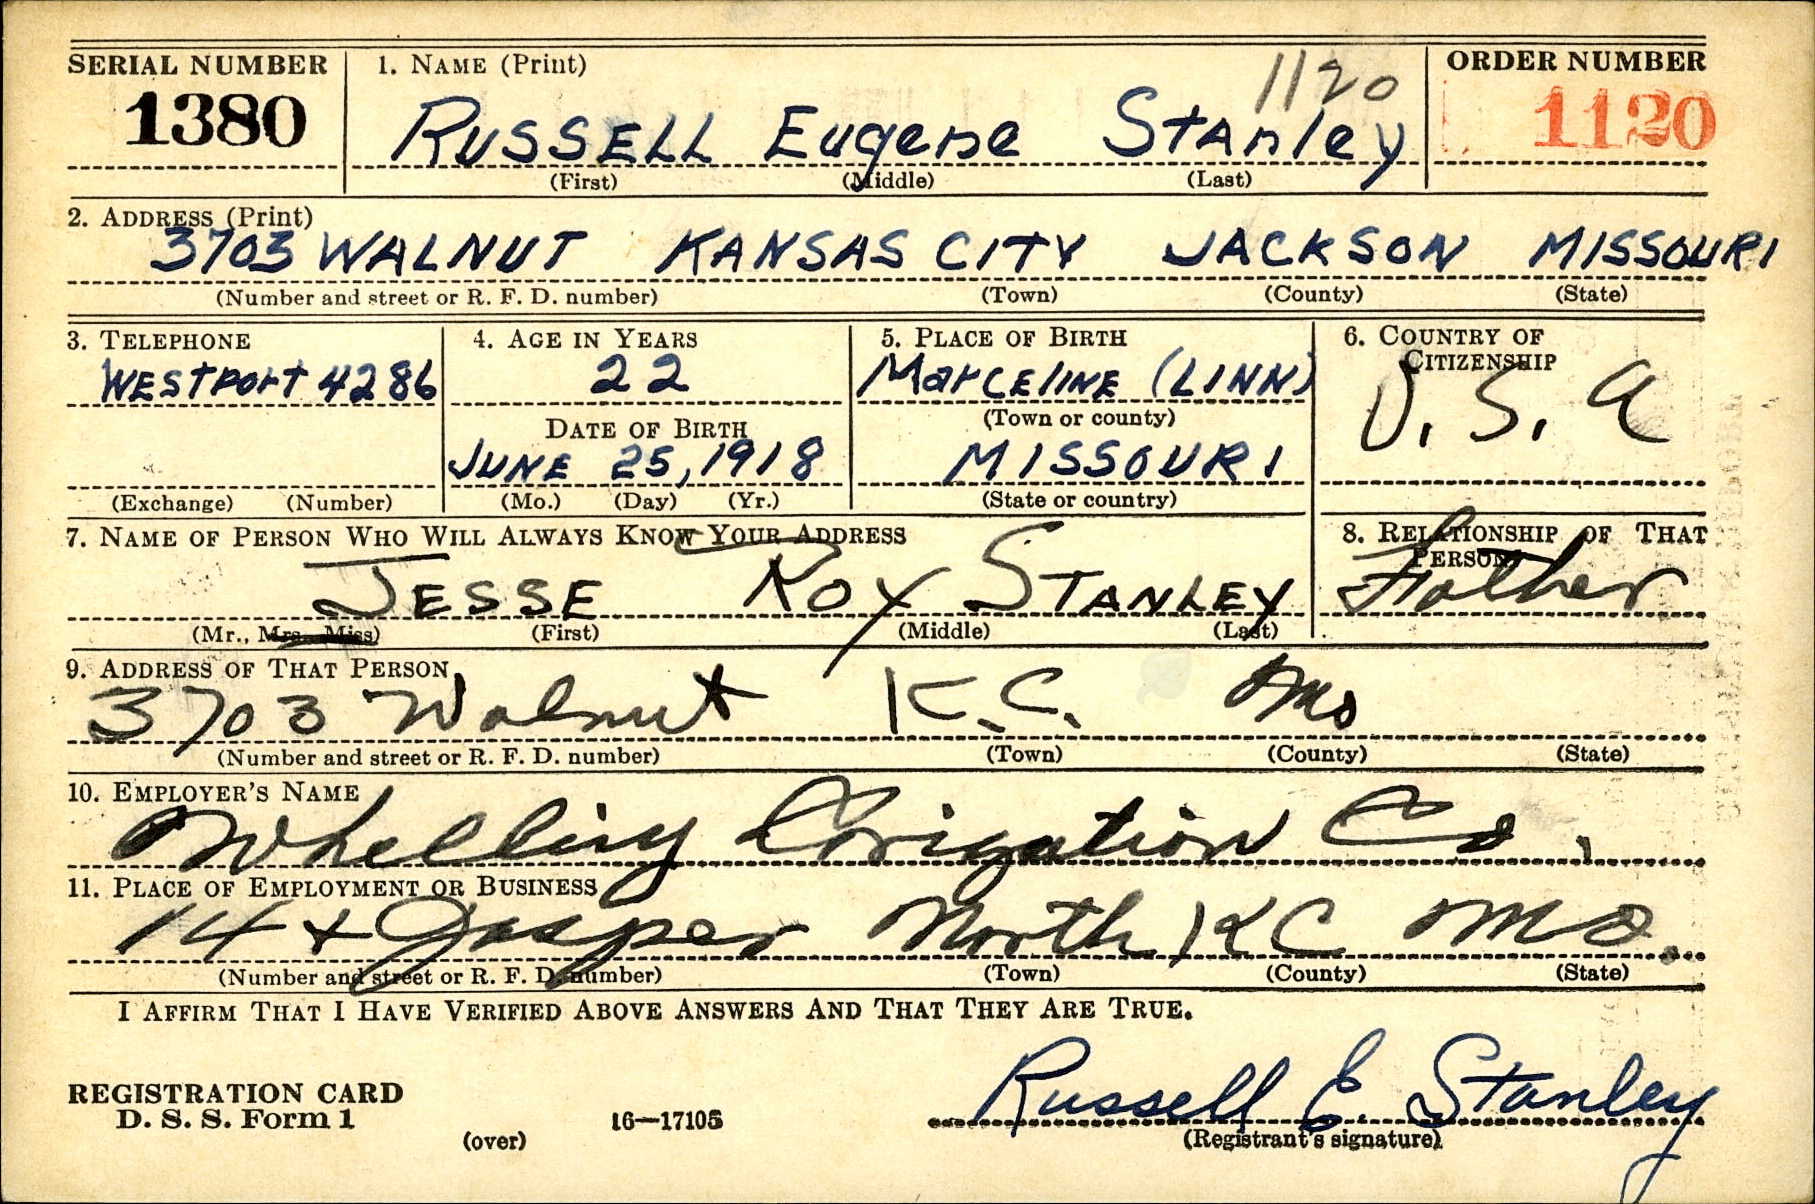 SERIAL NUMBER 1. NAME (Print) 1120 ORDER NUMBER
1380 RUSSELL Eugene Stanley 1120
(First) (Middle) (Last)
2. ADDRESS (Print)
3703 WALNUT KANSAS CITY JACKSON MISSOURI
(Number and street or R. F. D. number) (Town) (County) (State)
3. TELEPHONE 4. AGE IN YEARS 5. PLACE OF BIRTH 6. COUNTRY OF CITIZENSHIP
WESTPORT 4286 22 MARCELINE (LINN) U.S.A
DATE OF BIRTH (Town or county)
JUNE 25, 1918 MISSOURI
(Exchange) (Number) (Mo.) (Day) (Yr.) (State or country)
7. NAME OF PERSON WHO WILL ALWAYS KNOW YOUR ADDRESS 8. RELATIONSHIP OF THAT PERSON
JESSE ROY STANLEY Father
(Mr., Mrs., Miss) (First) (Middle) (Last)
9. ADDRESS OF THAT PERSON
3703 Walnut K.C. Mo
(Number and street or R. F. D. number) (Town) (County) (State)
10. EMPLOYER'S NAME
Wheeling Corigation Co.
11. PLACE OF EMPLOYMENT OR BUSINESS
14 + Jasper North KC Mo.
(Number and street or R. F. D. number) (Town) (County) (State)
I AFFIRM THAT I HAVE VERIFIED ABOVE ANSWERS AND THAT THEY ARE TRUE.
REGISTRATION CARD
D. S. S. Form 1 16—17105 Russell E. Stanley
(over) (Registrant's signature)